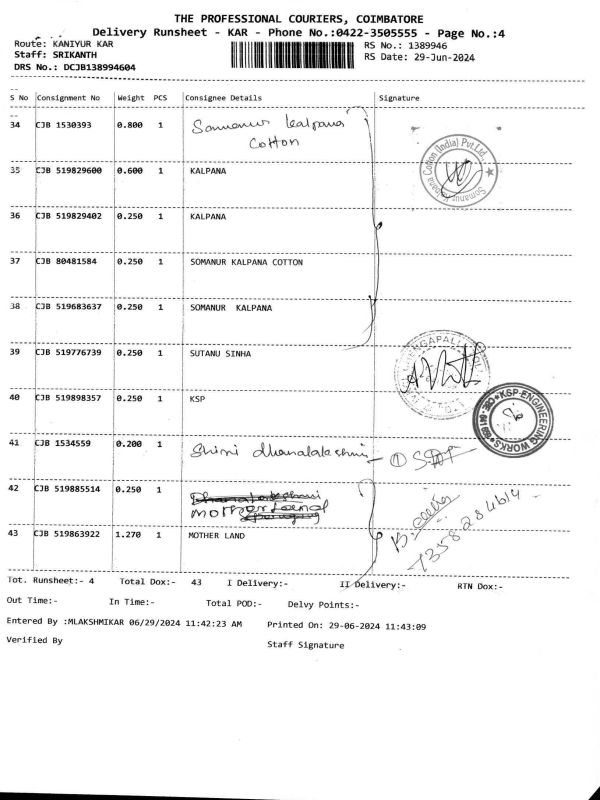 THE PROFESSIONAL COURIERS, COIMBATORE
Delivery Runsheet - KAR - Phone No.:0422-3505555 - Page No.:4
Route: KANIYUR KAR RS No.: 1389946
Staff: SRIKANTH RS Date: 29-Jun-2024
DRS No.: DCJB138994604
S No Consignment No Weight PCS Consignee Details Signature
34 CJB 1530393 0.800 1 Somanur kalpana
Cotton
35 CJB 519829600 0.600 1 KALPANA
Somanur Kalpana Cotton (India) Pvt.Ltd.
36 CJB 519829402 0.250 1 KALPANA
37 CJB 80481584 0.250 1 SOMANUR KALPANA COTTON
38 CJB 519683637 0.250 1 SOMANUR KALPANA
39 CJB 519776739 0.250 1 SUTANU SINHA
40 CJB 519898357 0.250 1 KSP
KSP ENGINEERING WORKS
41 CJB 1534559 0.200 1 Shini dhanalakshmi - ①
42 CJB 519885514 0.250 1 Dhanalakshmi
motherland
43 CJB 519863922 1.270 1 MOTHER LAND
7358284614
Tot. Runsheet:- 4 Total Dox:- 43 I Delivery:- II Delivery:- RTN Dox:-
Out Time:- In Time:- Total POD:- Delvy Points:-
Entered By :MLAKSHMIKAR 06/29/2024 11:42:23 AM Printed On: 29-06-2024 11:43:09
Verified By Staff Signature